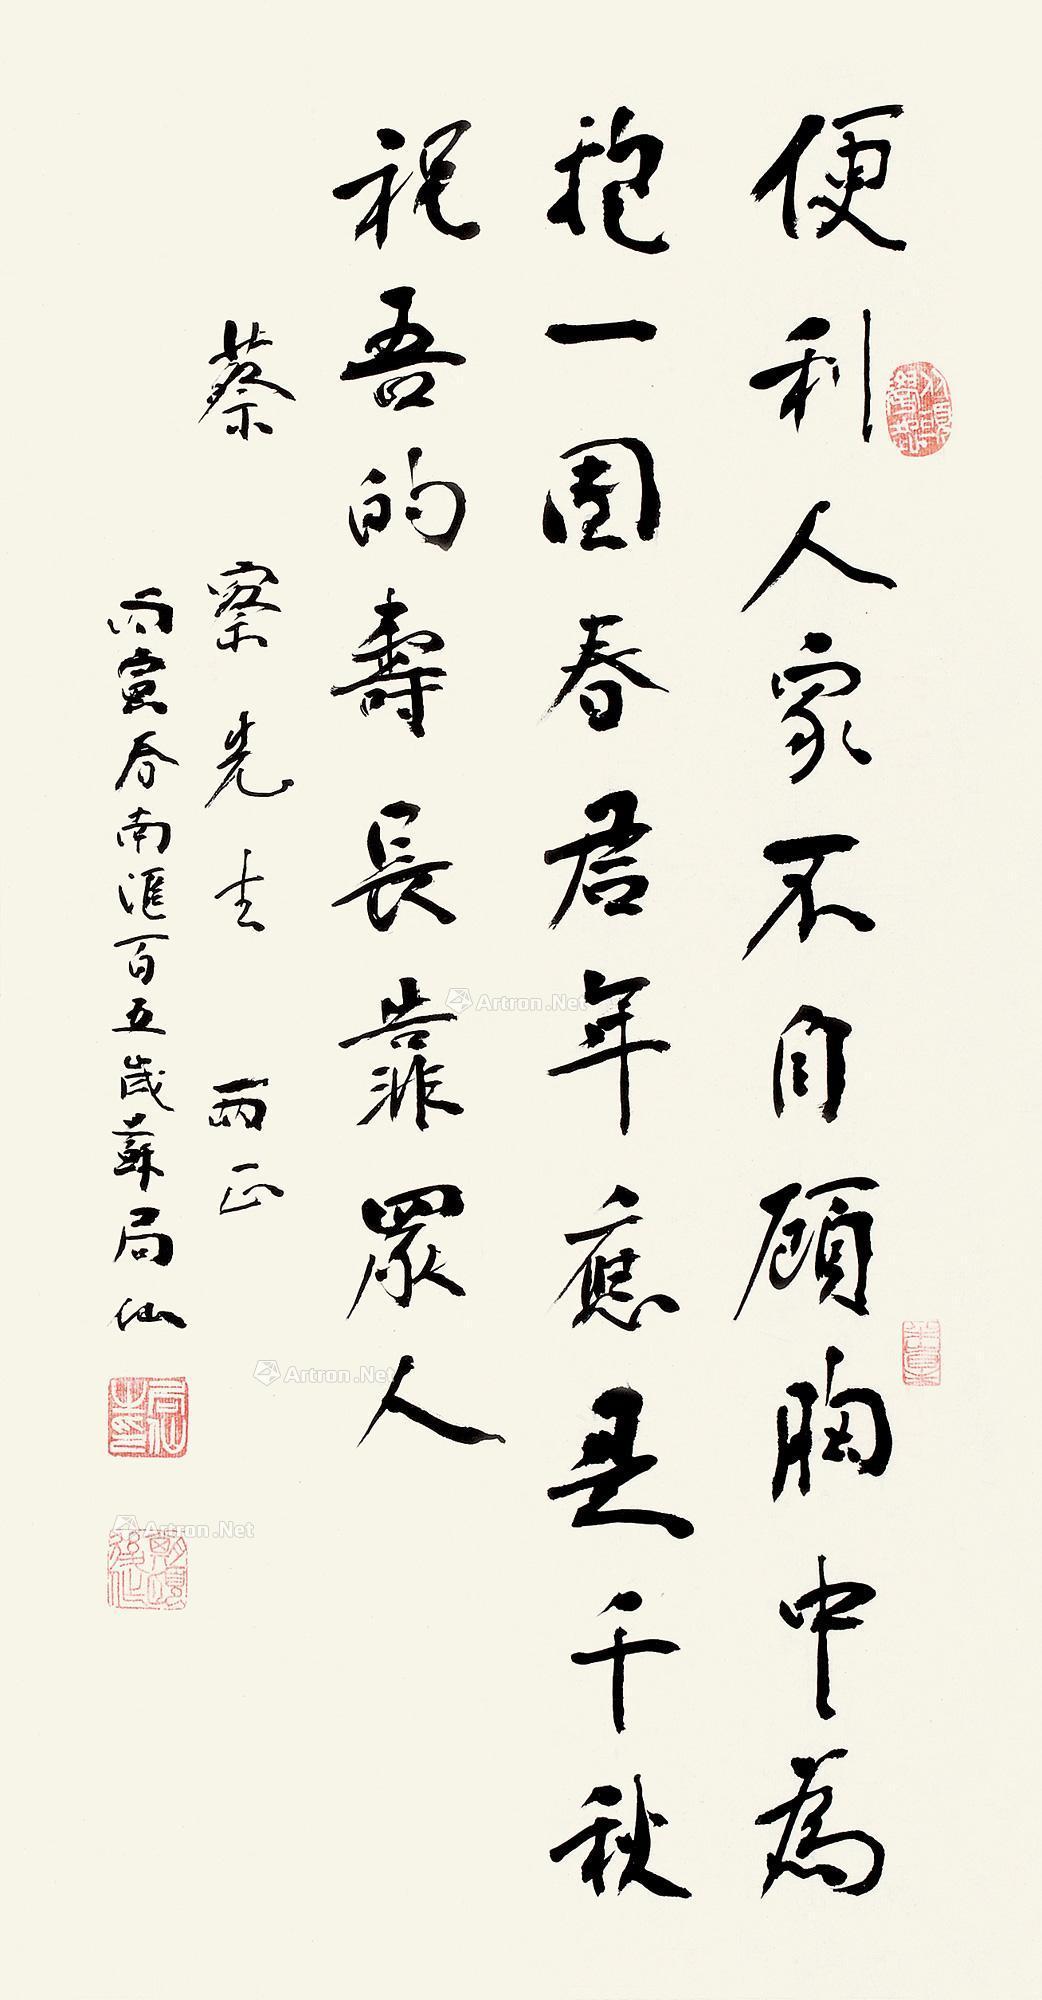 便利人家不自顧胸中爲
抱一團春君年應是千秋
祝吾的壽長靠眾人
蔡察先生 兩正
丙寅春南滙百五歲蘇局仙
Artron.Net
Artron.Net
Artron.Net